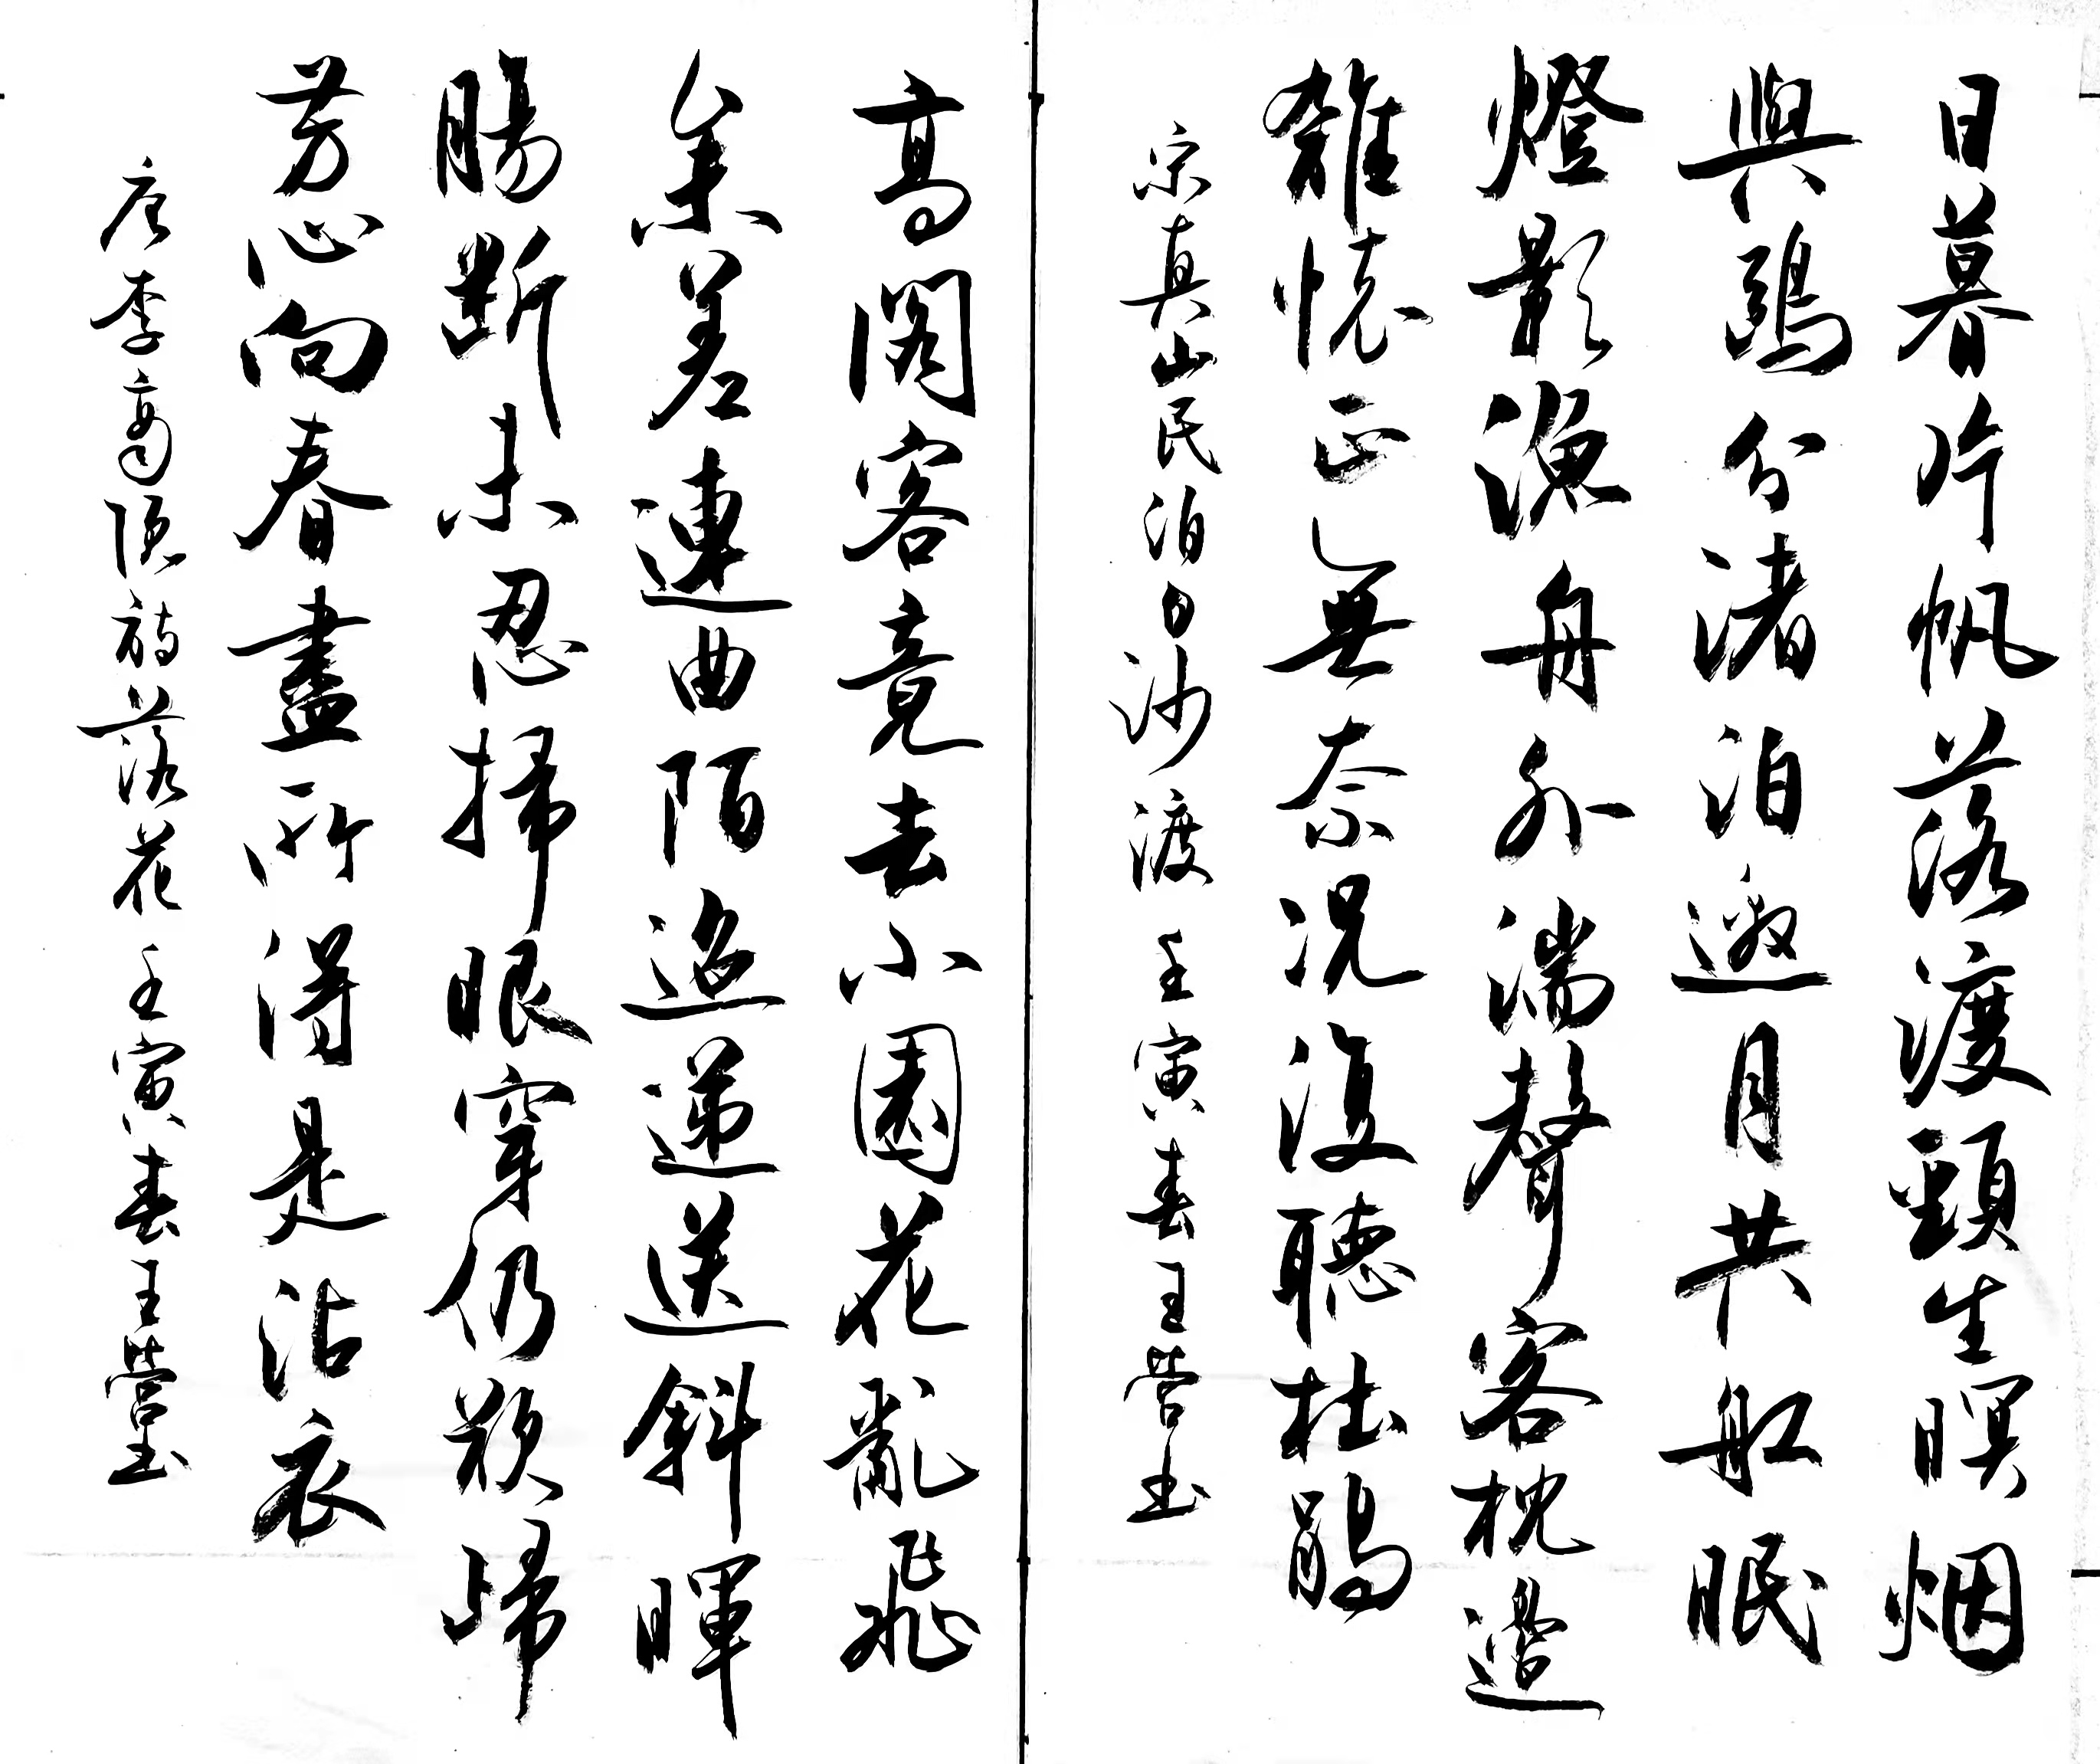 日暮片帆落渡頭生暝烟
與鷗分渚泊邀月共船眠
燈影漁舟外湍聲客枕邊
離懷正無奈況復聽杜鵑
宋真山民泊白沙渡 壬寅春王營書
高閣客竟去小園花亂飛
參差連曲陌迢遞送斜暉
腸斷未忍掃眼穿仍欲歸
芳心向春盡所得是沾衣
唐李商隱詩落花 壬寅春王營書